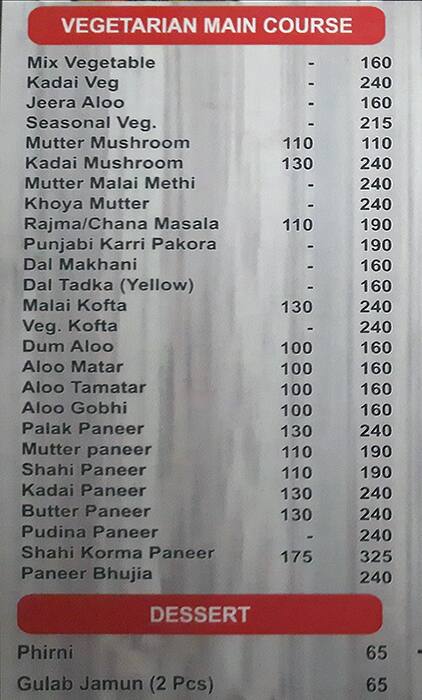 VEGETARIAN MAIN COURSE
Mix Vegetable - 160
Kadai Veg - 240
Jeera Aloo - 160
Seasonal Veg. - 215
Mutter Mushroom 110 110
Kadai Mushroom 130 240
Mutter Malai Methi - 240
Khoya Mutter - 240
Rajma/Chana Masala 110 190
Punjabi Karri Pakora - 190
Dal Makhani - 160
Dal Tadka (Yellow) - 160
Malai Kofta 130 240
Veg. Kofta - 240
Dum Aloo 100 160
Aloo Matar 100 160
Aloo Tamatar 100 160
Aloo Gobhi 100 160
Palak Paneer 130 240
Mutter paneer 110 190
Shahi Paneer 110 190
Kadai Paneer 130 240
Butter Paneer 130 240
Pudina Paneer - 240
Shahi Korma Paneer 175 325
Paneer Bhujia 240
DESSERT
Phirni 65
Gulab Jamun (2 Pcs) 65